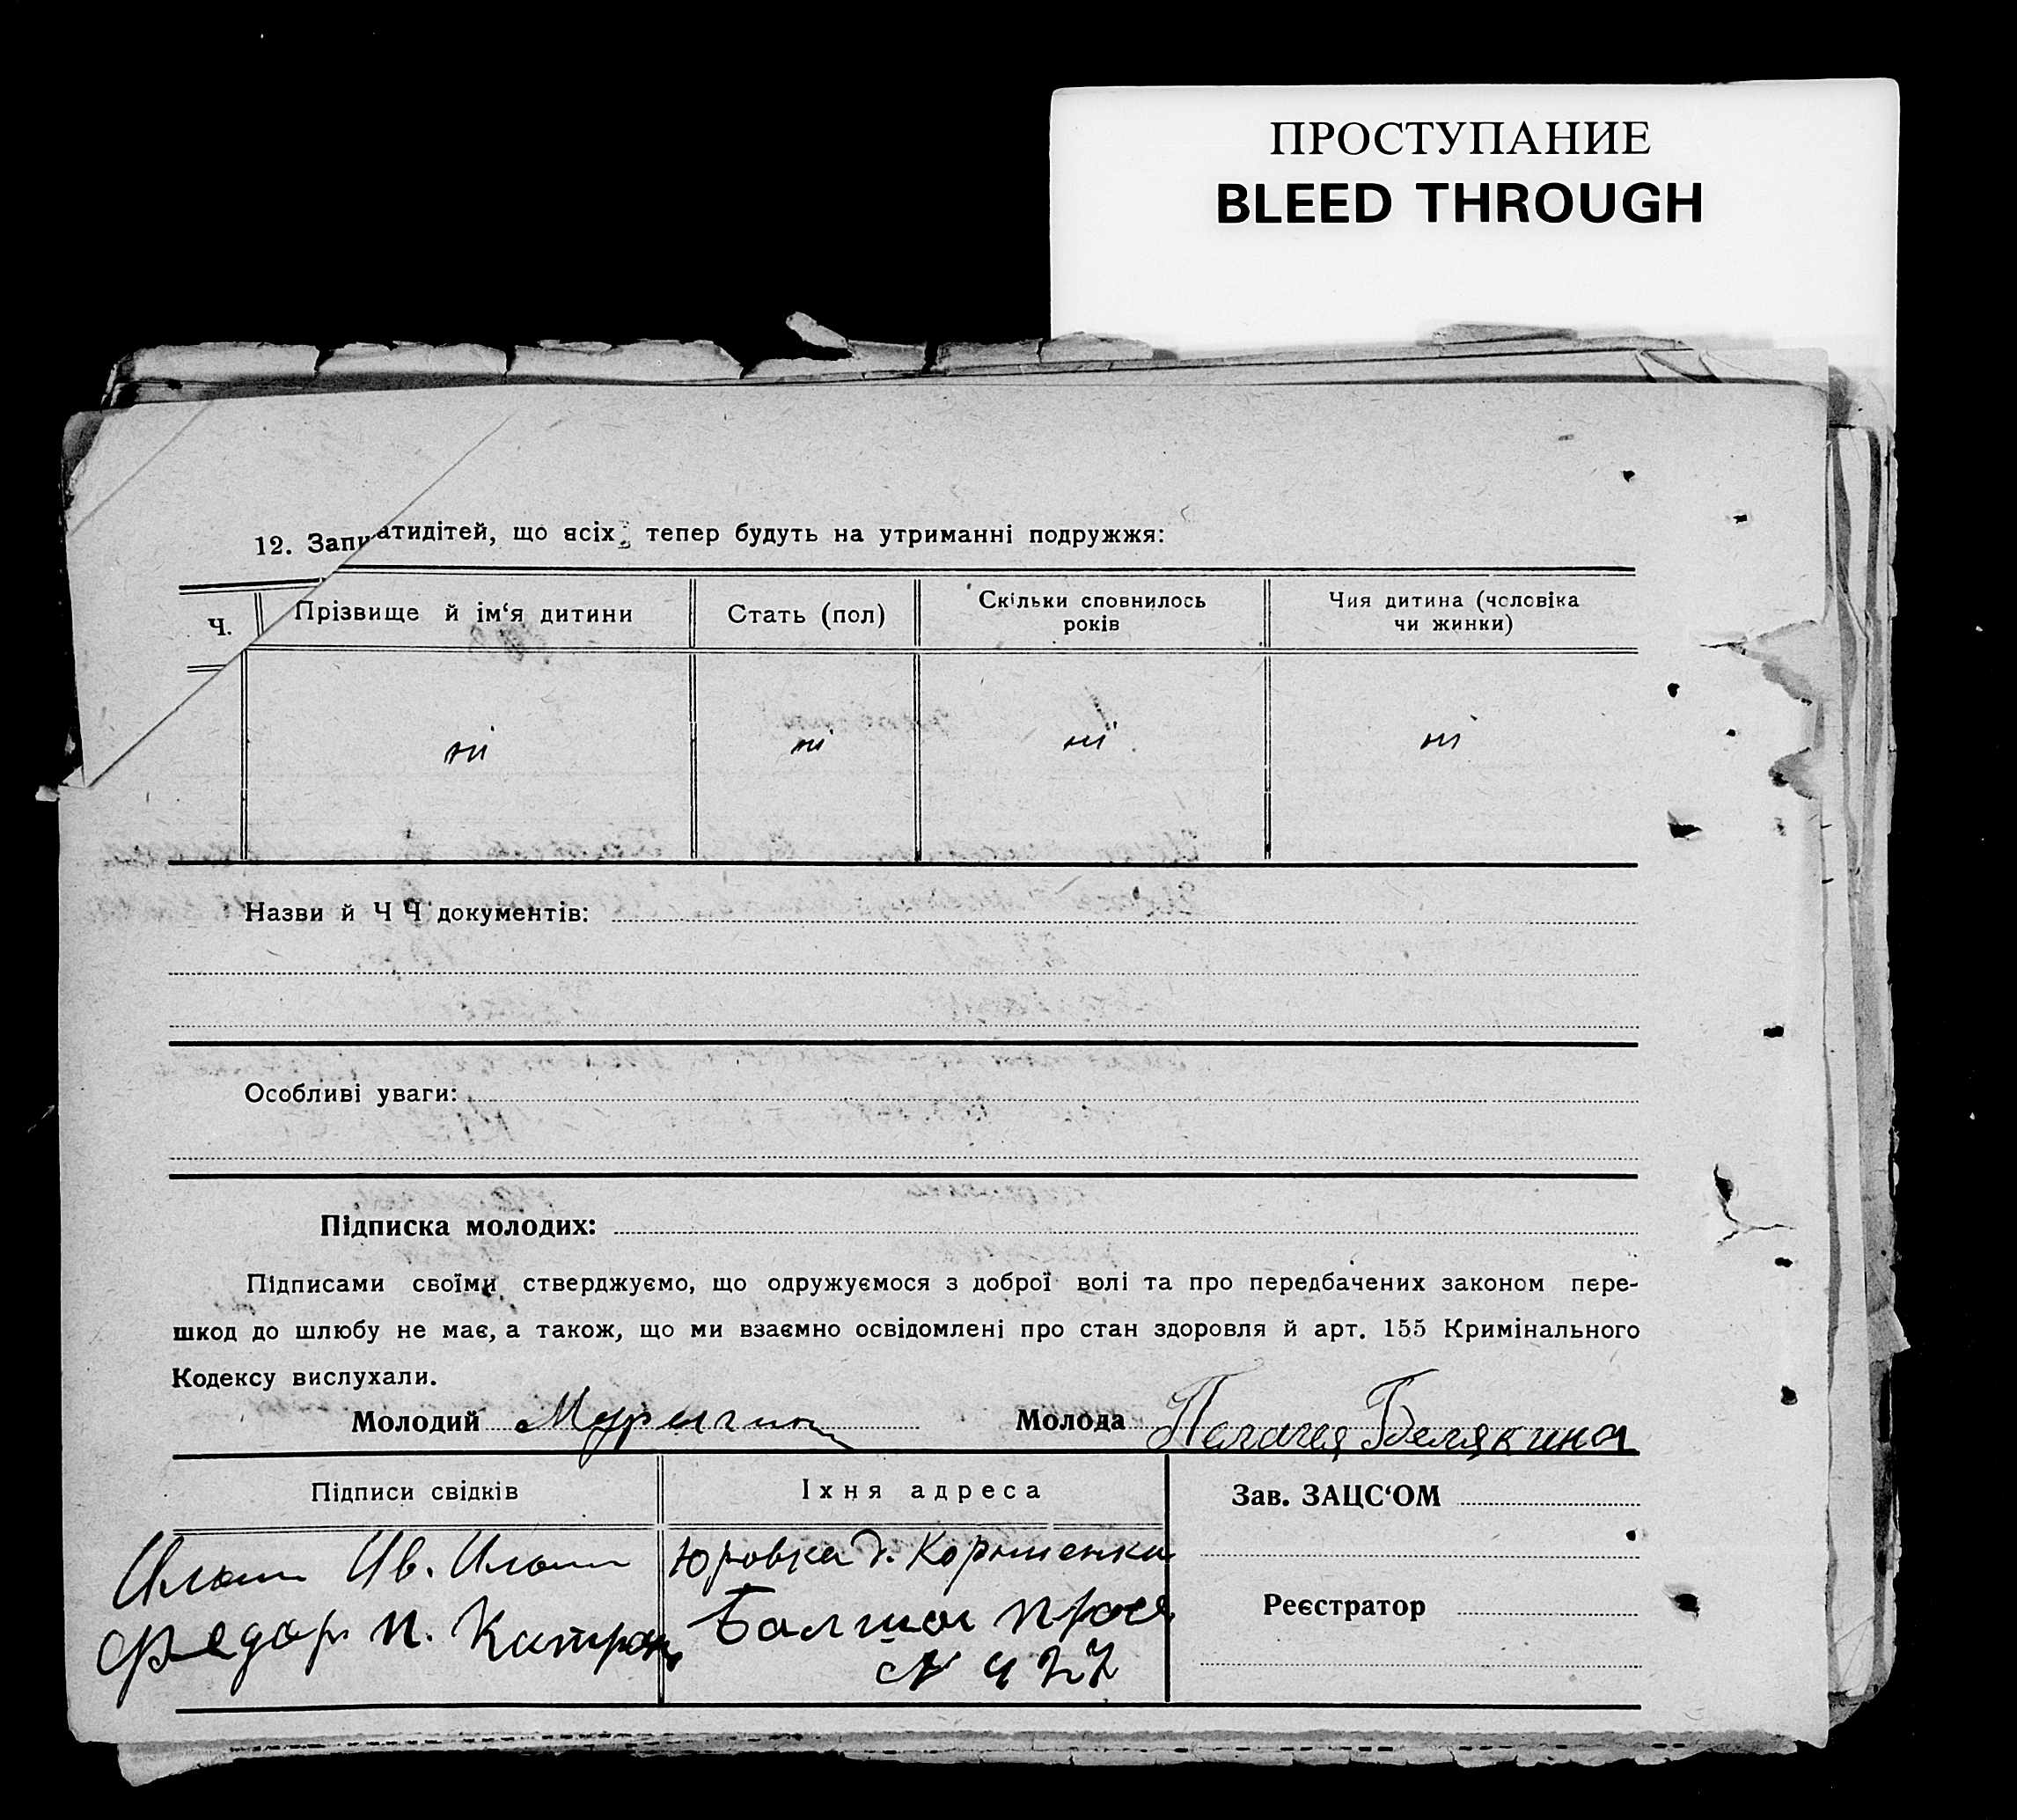 ПРОСТУПАНИЕ
BLEED THROUGH
12. Запи атидітей, що всіх тепер будуть на утриманні подружжя:
Ч. Прізвище й ім‘я дитини Стать (пол) Скільки сповнилось років Чия дитина (чоловіка чи жинки)
ні ні ні ні
Назви й Ч Ч документів:
Особливі уваги:
Підписка молодих:
Підписами своїми стверджуємо, що одружуємося з доброї волі та про передбачених законом пере-
шкод до шлюбу не має, а також, що ми взаємно освідомлені про стан здоровля й арт. 155 Кримінального
Кодексу вислухали.
Молодий Молода Пелагея Белякина
Підписи свідків Їхня адреса Зав. ЗАЦС‘ОМ
Ив. Юровка
Реєстратор
Федор П.
N 427